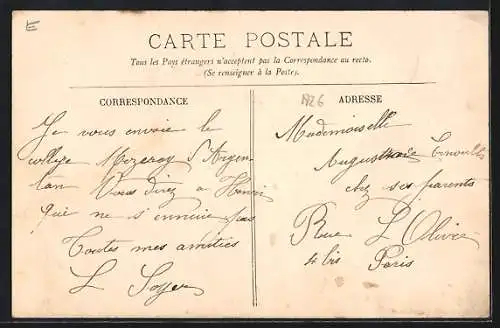 E
CARTE POSTALE
Tous les Pays étrangers n'acceptent pas la Correspondance au recto.
(Se renseigner à la Poste).
CORRESPONDANCE
Je vous envoie le
collège Mezeray d'Argen-
tan Vous direz a Henri
qui ne s'ennuie pas
Toutes mes amitiés
L Soyer
1926
ADRESSE
Mademoiselle
chez ses parents
Rue L'Olive
4 bis Paris